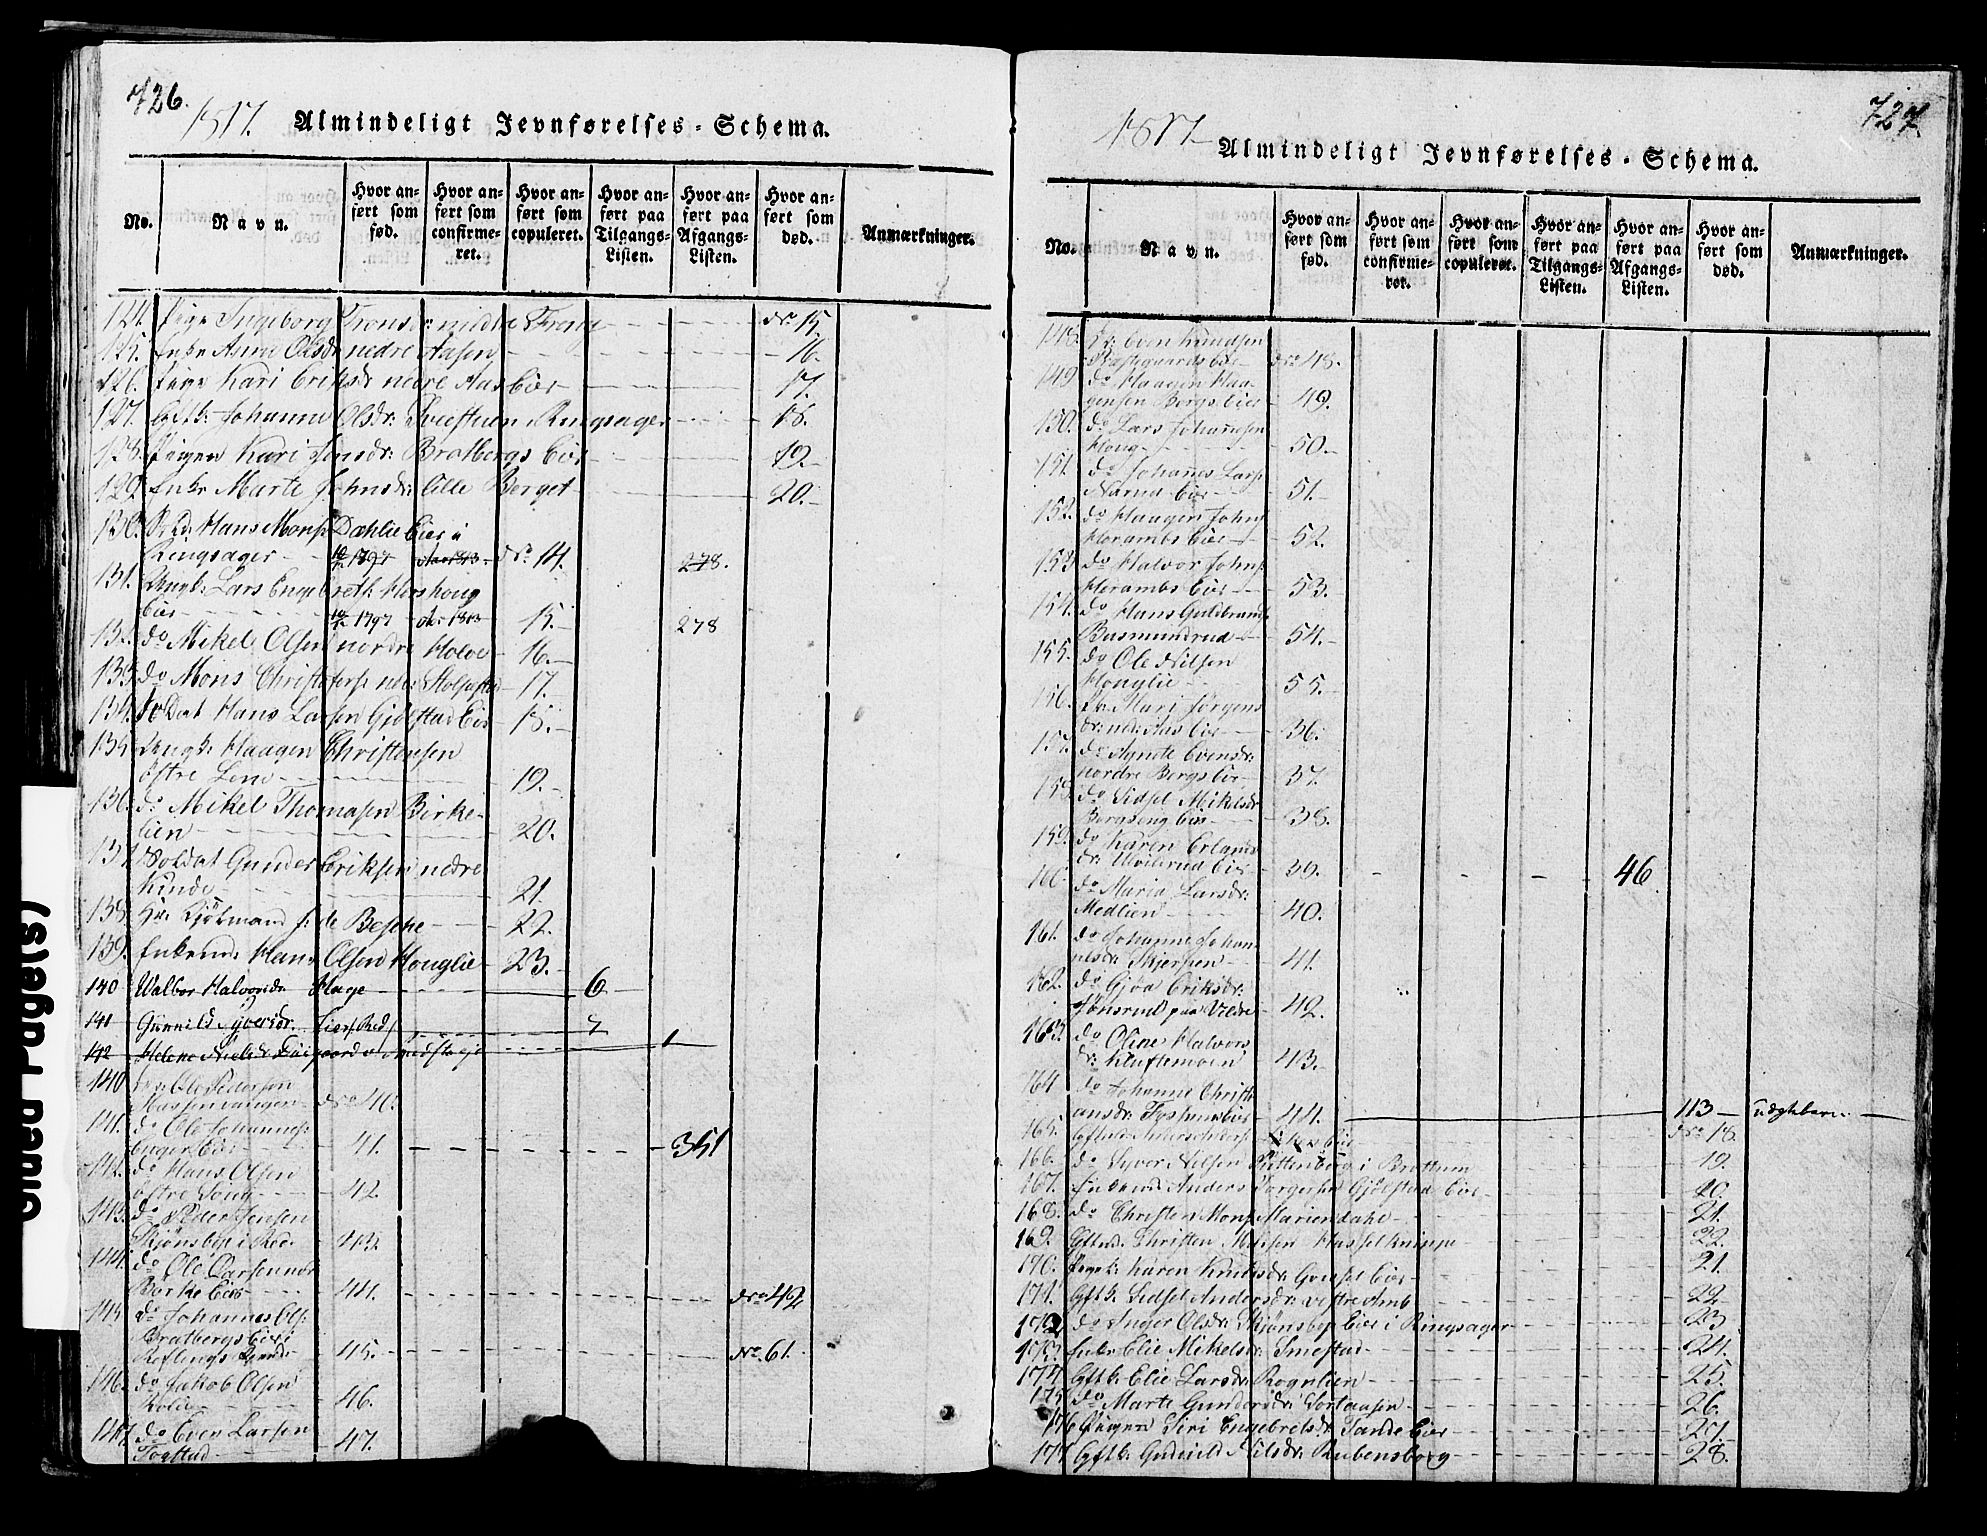 726.
1817. Almindeligt Jevnførelses-Schema.
No. Navn. Hvor anført som fød. Hvor anført som confirmeret. Hvor anført som copuleret. Hvor anført paa Tilgangs-Listen. Hvor anført paa Afgangs-Listen. Hvor anført som død. Anmærkninger.
124. Pige Ingeborg Tronsdr: nedre Freng No 15.
125. Enke Anne Olsdr nedre Aasen 16.
126. Pige Kari Eriksdr nedre Aas Eier 17.
127. Gftk: Johanne Olsdr: i Ringsager 18.
128. Pigen Kari Jensdr: Bratbergs Eier 19.
129. Enke Marte Johnsdr lille Berget 20.
130. Hans Monss: Dæhlie Eier i
Ringsager 1797 1813 No 14. 278.
131. Ungk: Lars Engebreths: Hershoug
Eier 1797 1813 15. 278
132. do Mikel Olsen nordre Holve 16.
133. do Mons Christophers: nedre Stolpestad 17.
134. Soldat Hans Larsen Gjølstad Eier 18.
135. Ungk: Haagen Christensen
østre Lene 19.
136. do Mikel Thomasen Birke-
lien 20.
137. Soldat Gunder Eriksen nedre
Kinde 21.
138. Hr: Kjøbmand de Besche 22.
139. Enkemd: Hans Olsen Houglie 23.
140 Walbor Halvorsdr Hage 6
141 Gunnild Syversdr. Eier, Red, 7
142 Helene Nielsdr 1
140. Ole Pedersen
No 40.
141. do Ole Johannes:
Enger Eier 41. 351
142. do Hans Olsen
østre Soug 42.
143. do Peder Jensen
Skjønsby i Red. 43.
144. do Ole Larsen nor:
Børke Eier 44. No 42
145. do Johannes Ols:
Bratbergs Eier i
45. No. 61.
146. do Jakob Olsen
Kolie 46.
147. do Even Larsen
Fogstad 47.
727
1817 Almindeligt Jevnførelses-Schema.
No. Navn. Hvor anført som fød. Hvor anført som confirmeret. Hvor anført som copuleret. Hvor anført paa Tilgangs-Listen. Hvor anført paa Afgangs-Listen. Hvor anført som død. Anmærkninger.
148. Even Knudsen
Eier No 48.
149 do Haagen Haa-
gensen Bergs Eier 49.
150. do Lars Johannesen
Houg 50.
151. do Johanes Lars:
Narud Eier 51.
152. do Haagen Johns:
Horambs Eier 52.
153 do Halvor Johns:
Horambs Eier 53.
154. do Hans Guldbrands
Basmundrud 54.
155. do Ole Nilsen
Houglie 55.
156. Mari Jørgens
dr: ned: Aas Eier 36.
157. do Agnete Evensdr:
nordre Bergs Eier 37.
158. do Sidsel Mikelsdr
Bergseng Eier 38.
159. do Karen Erlands
dr: Ulvilsrud Eier 39. 46
160. do Maria Larsdr:
Medlien 40.
161. do Johanne Johan
nesdr: Skjersen 41.
162. do Gjøa Eriksdr:
Jønsrud paa Vildre 42.
163. do Oline Halvors
dr: Kluftemoen 43.
164 do Johanne Christi
ansdr: Eier 44. 113 uægtebarn
165. Gftmd: Anders Peders: Eier No 18.
166. do Syver Nilsen i Brøttum 19.
167. Enkemd: Anders Torgersen Gjølstad Eier 20.
168. do Christen Mons: Mariendahl 21.
169. Gftmd: Christen Nilsen Hasselknippe 22.
170. Pige: Karen Knudsdr: Eier 21.
171. Gftk: Sidsel Andersdr: vestre Amb 22
172 do Inger Olsdr: Skjønsby Eier i Ringsager 23
173. Enke Elie Mikelsdr: Smestad 24.
174 Gftk: Elie Larsdr: Rognlien 25.
175 do Marte Gundersdr: 26.
176 Pigen Siri Engebretsdr: Sande Eier 27.
177 Gftk: Gunnild Nilsdr: Rubensborg 28.